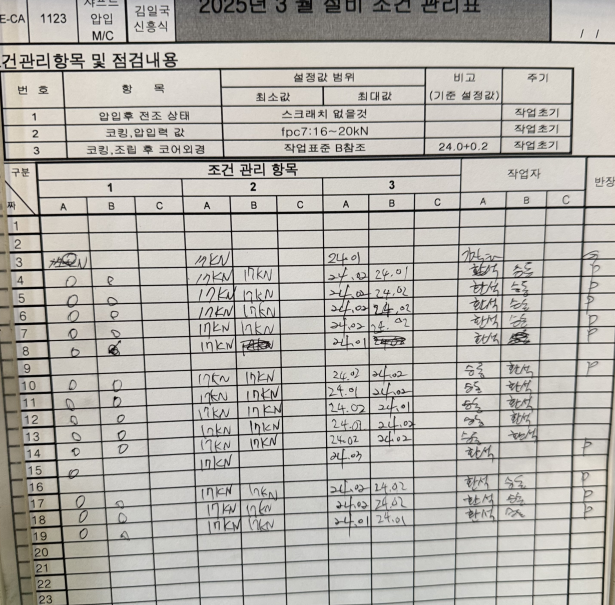 2025년 3 월 설비 조건 관리표
E-CA 1123 샤프트 압입 M/C 김일국 신흥식
/ /
건관리항목 및 점검내용
번 호 항 목 설정값 범위 비고 주기
최소값 최대값 (기준 설정값)
1 압입후 전조 상태 스크래치 없을것 작업초기
2 코킹,압입력 값 fpc7:16~20kN 작업초기
3 코킹,조립 후 코어외경 작업표준 B참조 24.0+0.2 작업초기
구분 조건 관리 항목 작업자 반장
1 2 3
짜 A B C A B C A B C A B C
1
2
3 17KN 24.01
4 O O 17KN 17KN 24.02 24.01 한석 승돌
5 O O 17KN 17KN 24.02 24.02 한석 승돌
6 O O 17KN 17KN 24.02 24.02 한석 승돌
7 O O 17KN 17KN 24.02 24.02 한석 승돌
8 O 17KN 24.01 한석
9
10 O O 17KN 17KN 24.02 24.02 승돌 한석
11 O O 17KN 17KN 24.01 24.02 승돌 한석
12 O O 17KN 17KN 24.02 24.01 승돌 한석
13 O O 17KN 17KN 24.01 24.02 승돌 한석
14 O O 17KN 17KN 24.02 24.02 승돌 한석
15 O 17KN 24.03 한석
16
17 O O 17KN 17KN 24.02 24.02 한석 승돌
18 O O 17KN 17KN 24.02 24.02 한석 승돌
19 O O 17KN 17KN 24.01 24.01 한석 승돌
20
21
22
23